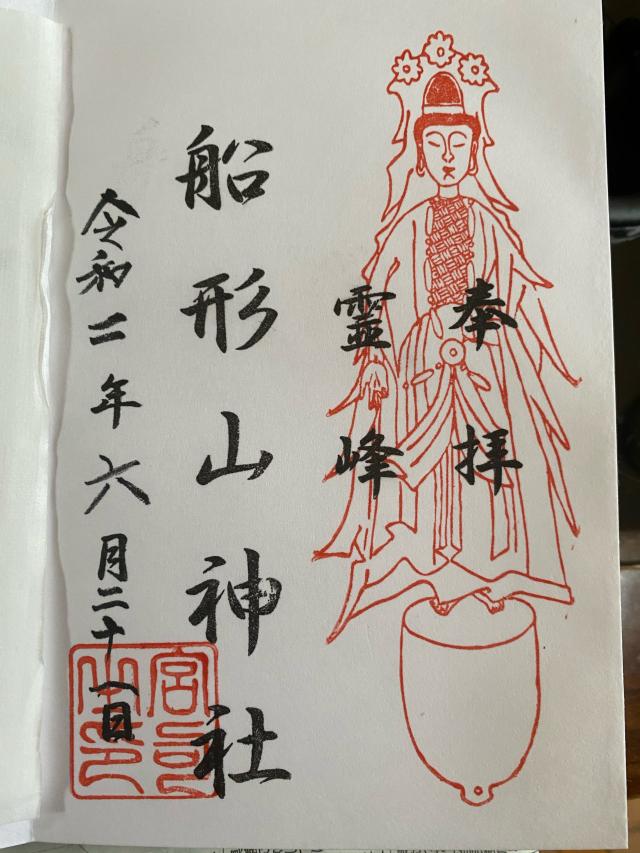 奉拝
霊峰
船形山神社
令和二年六月二十八日
宮司之印